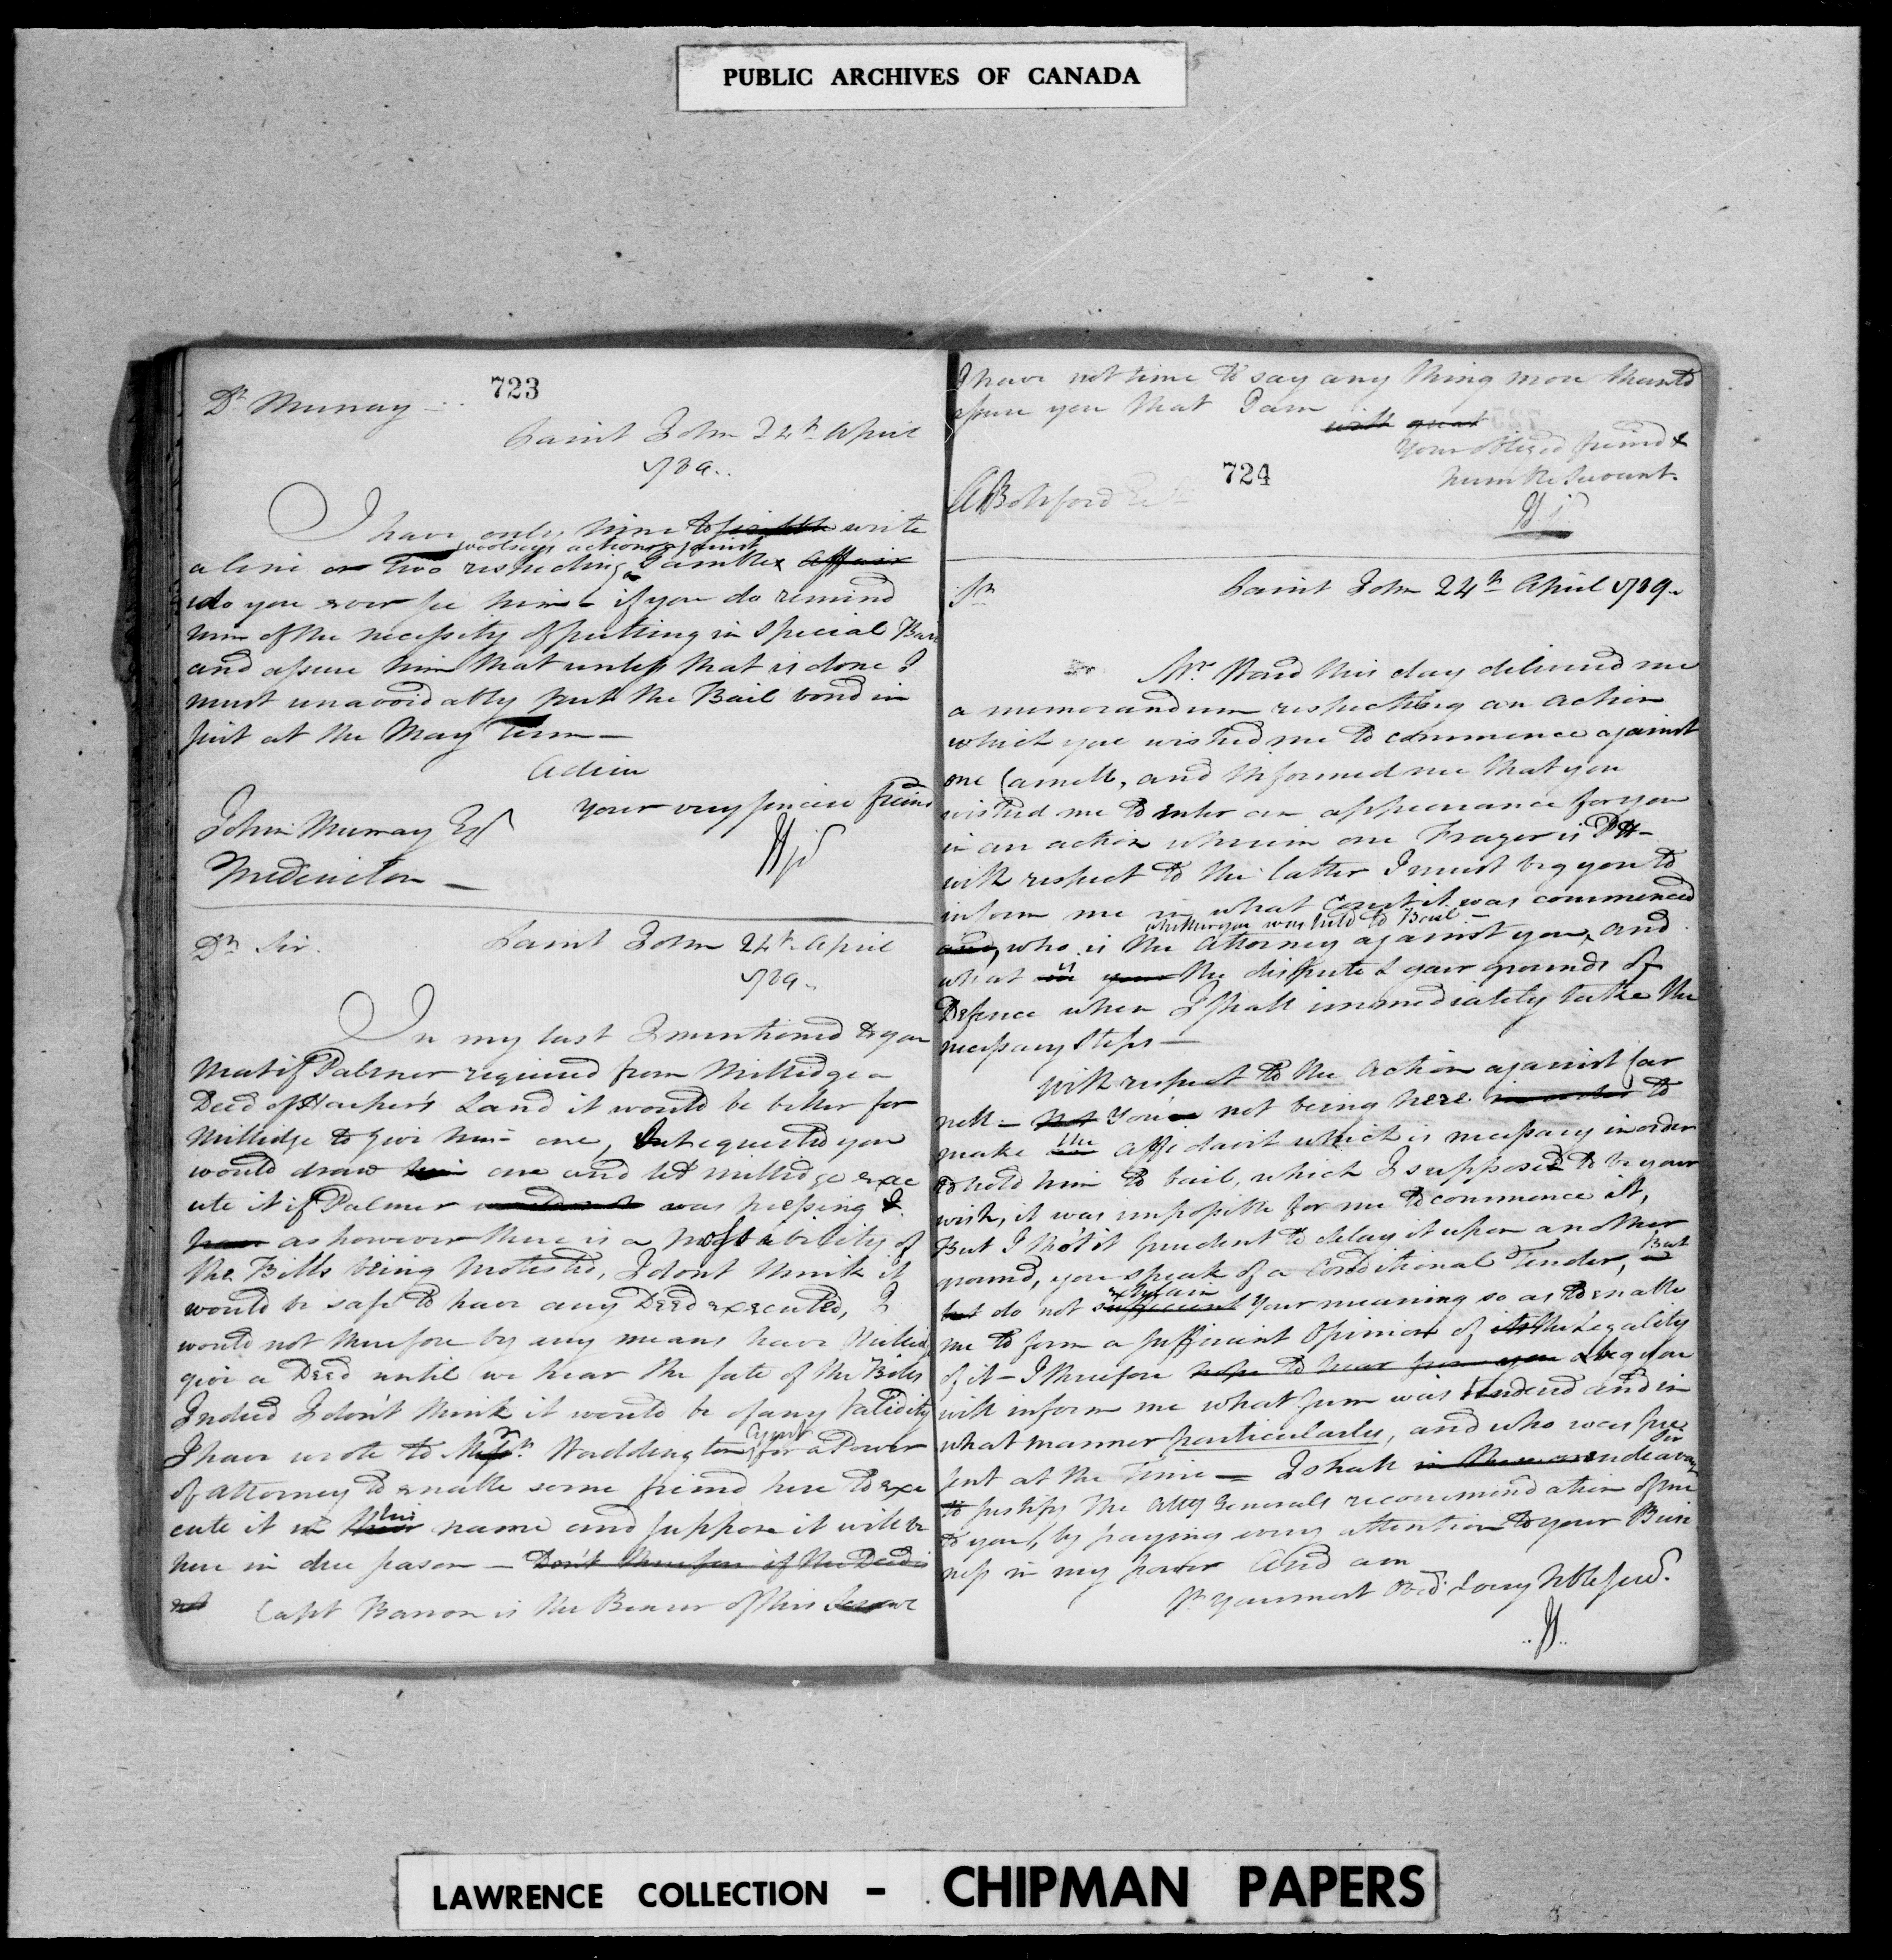 PUBLIC ARCHIVES OF CANADA
723
Dr Murray —
Saint John 24th April
1789..
I have only time to write
a line or two respecting Woolseys action against Gamble affair
do you ever see him — if you do remind
him of the necessity of putting in special Bail
and assure him that unless that is done I
must unavoidably put the Bail bond in
suit at the May Term —
Adieu
your very sincere friend
John Murray Esqr
Fredericton —
Dr Sir.
Saint John 24th April
1789..
In my last I mentioned to you
that if Palmer required from Millidge a
Deed of Harper's Land it would be better for
Millidge to give him one, & requested you
would draw him one and let Millidge exe
cute it if Palmer was pressing &
as however there is a probability of
the Bills being protested, I dont think it
would be safe to have any Deed executed, I
would not therefore by any means have Millidge
give a Deed until we hear the fate of the Bills
Indeed I don't think it would be of any Validity
I have wrote to Waddington Agent for a Power
of attorney to enable some friend here to exe
cute it in their his name and suppose it will be
here in due season — Don't therefore if the Deed is
not Capt Barron is the Bearer of this
I have not time to say any thing more than to
assure you that I am
with great
Your obliged friend &
humble Servant.
724
A Botsford Esqr
Sr
Saint John 24th April 1789..
Mr. Ward this day delivered me
a memorandum respecting an action
which you wished me to commence against
one Carnell, and informed me that you
wished me to enter an appearance for you
in an action wherein one Frazer is Ptt —
with respect to the latter I must beg you to
inform me in what Court it was commenced
whether you were held to Bail —
and, who is the Attorney against you, and
what is your the dispute & your grounds of
Defence when I shall immediately take the
necessary steps —
With respect to the Action against Car
nell — not You not being here in order to
make the affidavit which is necessary in order
to hold him to bail, which I supposed to be your
wish, it was impossible for me to commence it,
But I tho't it prudent to delay it upon another
ground, you speak of a Conditional Tender, But
but do not sufficient explain your meaning so as to enable
me to form a sufficient Opinion of the Legality
of it — I therefore hope to hear from you beg you
will inform me what sum was tendered and in
what manner particularly, and who was pre
sent at the Time — I shall Sir endeavour
to justify the Atty Generals recommendation of me
to you, by paying every attention to your Busi
ness in my power and am
Sr your most Obd. Servt
LAWRENCE COLLECTION - CHIPMAN PAPERS